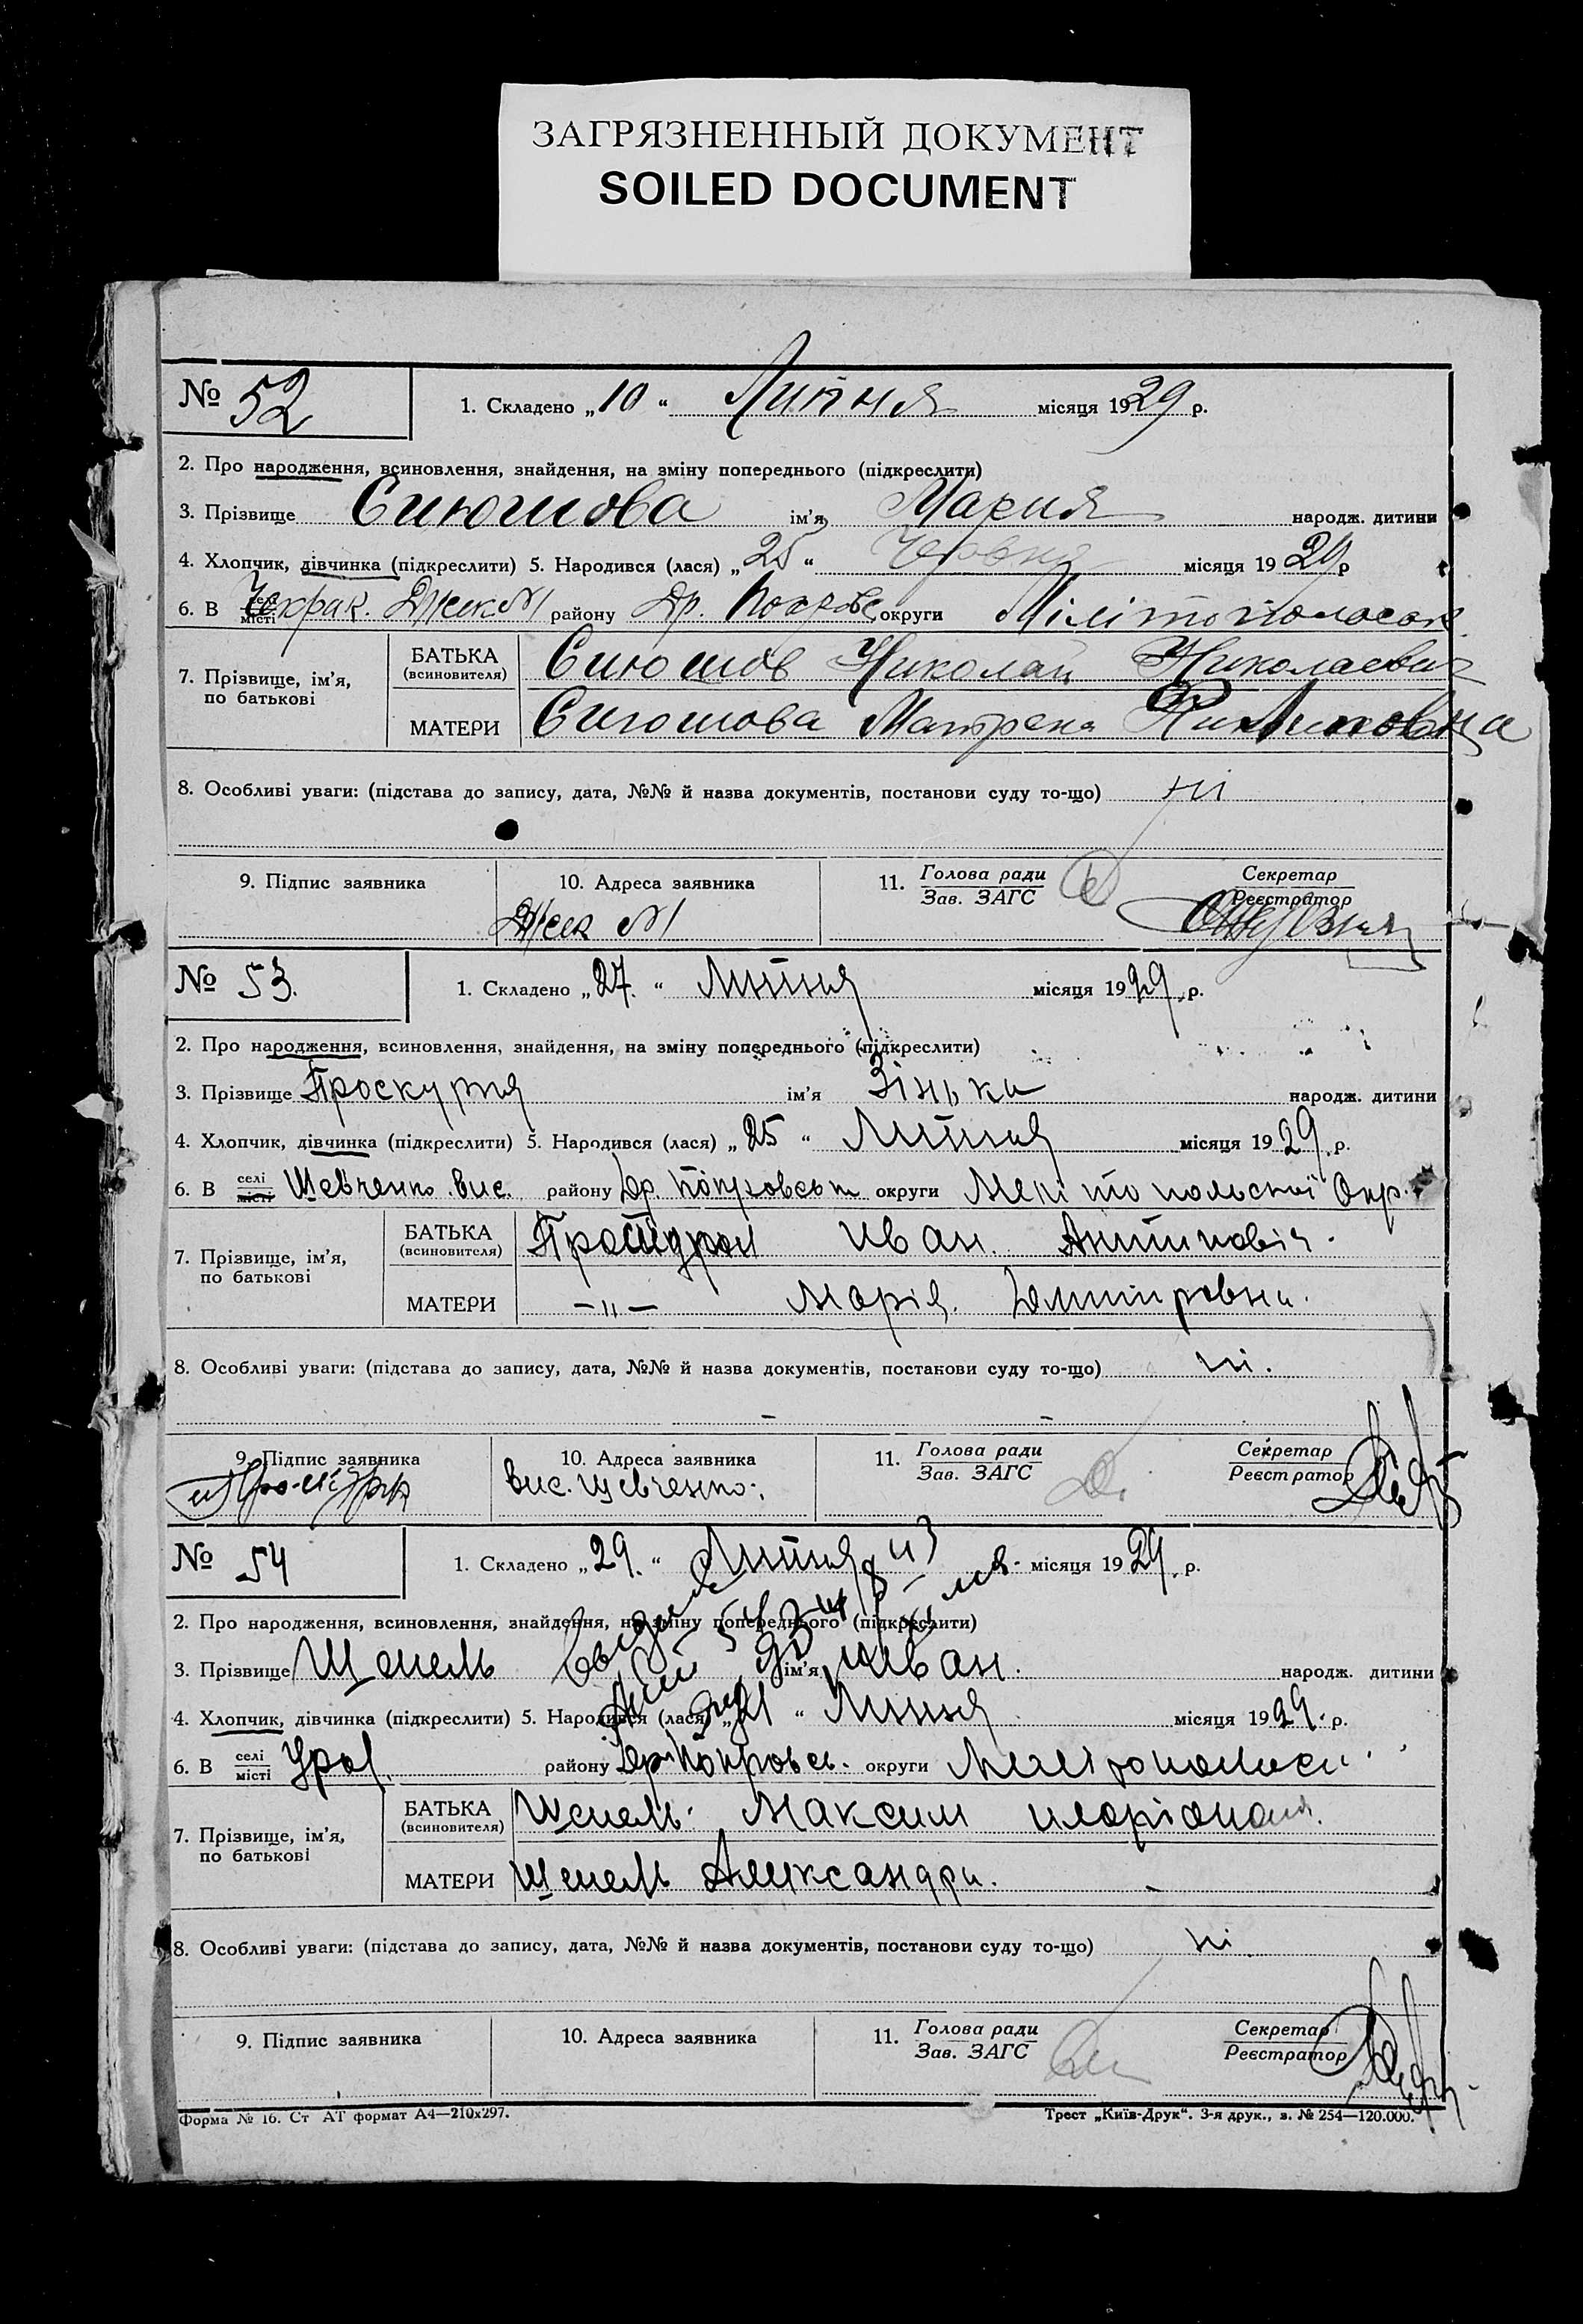 ЗАГРЯЗНЕННЫЙ ДОКУМЕНТ
SOILED DOCUMENT
№ 52
1. Складено „10“ Липня місяця 1929 р.
2. Про народження, всиновлення, знайдення, на зміну попереднього (підкреслити)
3. Прізвище Сиюшова ім’я Мария народж. дитини
4. Хлопчик, дівчинка (підкреслити) 5. Народився (лася) „25“ Червня місяця 1929 р
6. В селі місті Чекрак. району Др. Покровс округи
7. Прізвище, ім’я, по батькові
БАТЬКА (всиновителя) Сиюшов Николай Николаевич
МАТЕРИ Сиюшова Матрена
8. Особливі уваги: (підстава до запису, дата, №№ й назва документів, постанови суду то-що) ні
9. Підпис заявника 10. Адреса заявника 11. Голова ради Зав. ЗАГС Секретар Реєстратор
№ 53.
1. Складено „27.“ Липня місяця 1929 р.
2. Про народження, всиновлення, знайдення, на зміну попереднього (підкреслити)
3. Прізвище Проскурня ім’я Зінька народж. дитини
4. Хлопчик, дівчинка (підкреслити) 5. Народився (лася) „25“ Липня місяця 1929 р.
6. В селі місті Шевченко вис. району Др. Покровськ округи Мелітопольської Окр.
7. Прізвище, ім’я, по батькові
БАТЬКА (всиновителя) Иван. Антипович.
МАТЕРИ —„— Марія. Дмитровна.
8. Особливі уваги: (підстава до запису, дата, №№ й назва документів, постанови суду то-що) ні.
9. Підпис заявника 10. Адреса заявника 11. Голова ради Зав. ЗАГС Секретар Реєстратор
вис. Шевченко.
№ 54
1. Складено „29.“ Липня місяця 1929 р.
2. Про народження, всиновлення, знайдення, на зміну попереднього (підкреслити)
3. Прізвище Щепель ім’я Иван. народж. дитини
4. Хлопчик, дівчинка (підкреслити) 5. Народився (лася) „21“ Липня місяця 1929. р.
6. В селі місті району Др. Покровсь. округи Мелітопольськ
7. Прізвище, ім’я, по батькові
БАТЬКА (всиновителя) Щепель Максим
МАТЕРИ Щепель Александра.
8. Особливі уваги: (підстава до запису, дата, №№ й назва документів, постанови суду то-що) ні
9. Підпис заявника 10. Адреса заявника 11. Голова ради Зав. ЗАГС Секретар Реєстратор
Форма № 16. Ст АТ формат А4—210х297. Трест „Київ-Друк“. 3-я друк., з. № 254—120.000.